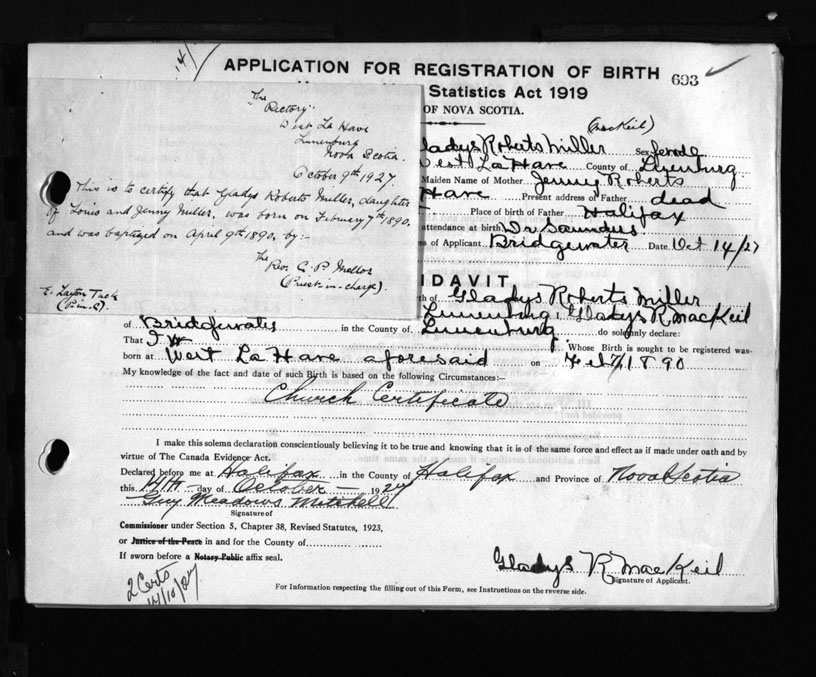 14/
APPLICATION FOR REGISTRATION OF BIRTH 693
Statistics Act 1919
OF NOVA SCOTIA.
(MacKeil)
The
Rectory
West La Have
Lunenburg
Nova Scotia.
October 9th 1927
This is to certify that Gladys Roberts Miller, daughter
of Louis and Jenny Miller, was born on February 7th 1890.
and was baptized on April 9th 1890, by:-
The
Rev. G. P. Mellor
(Priest-in-charge).
E. Layton Tuck
(P-in-C).
ladys Roberts Miller Sex female
West La Have County of Lunenburg
Maiden Name of Mother Jenny Roberts
Have Present address of Father dead
Place of birth of Father Halifax
attendance at birth Dr Saunders
of Applicant Bridgewater Date Oct 14/27
IDAVIT
th of Gladys Roberts Miller
Lunenburg I, Gladys R MacKeil
of Bridgewater in the County of Lunenburg do solemnly declare:
That I Whose Birth is sought to be registered was
born at West La Have aforesaid on Feb 7/1890
My knowledge of the fact and date of such Birth is based on the following Circumstances:—
Church Certificate
I make this solemn declaration conscientiously believing it to be true and knowing that it is of the same force and effect as if made under oath and by
virtue of The Canada Evidence Act.
Declared before me at Halifax in the County of Halifax and Province of Nova Scotia
this 14th day of October 1927
Guy Meadows Mitchell
Signature of
Commissioner under Section 5, Chapter 38, Revised Statutes, 1923,
or Justice of the Peace in and for the County of
If sworn before a Notary Public affix seal.
Gladys R MacKeil
Signature of Applicant.
2 Certs
14/10/27
For Information respecting the filling out of this Form, see Instructions on the reverse side.